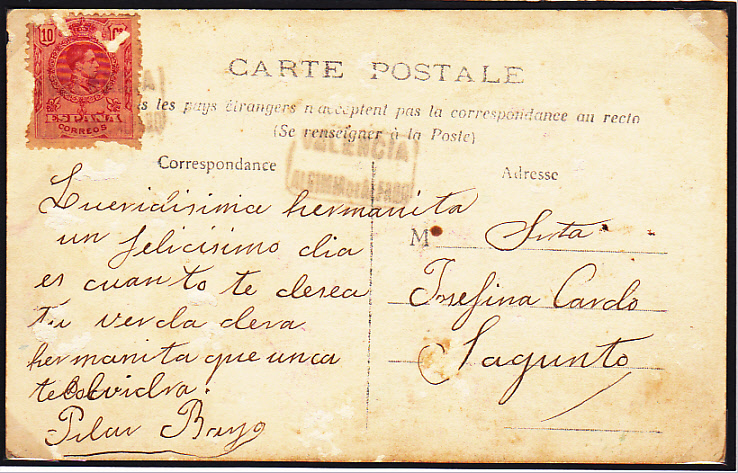 10 Cs
ESPAÑA
CORREOS
CARTE POSTALE
les pays étrangers n'acceptent pas la correspondance au recto
(Se renseigner à la Poste)
VALENCIA
Correspondance
Queridisima hermanita
un felicisimo dia
es cuanto te desea
tu verda dera
hermanita que unca
te olvidra.
Pilar Bayo
Adresse
M Srta
Josefina Cardo
Sagunto